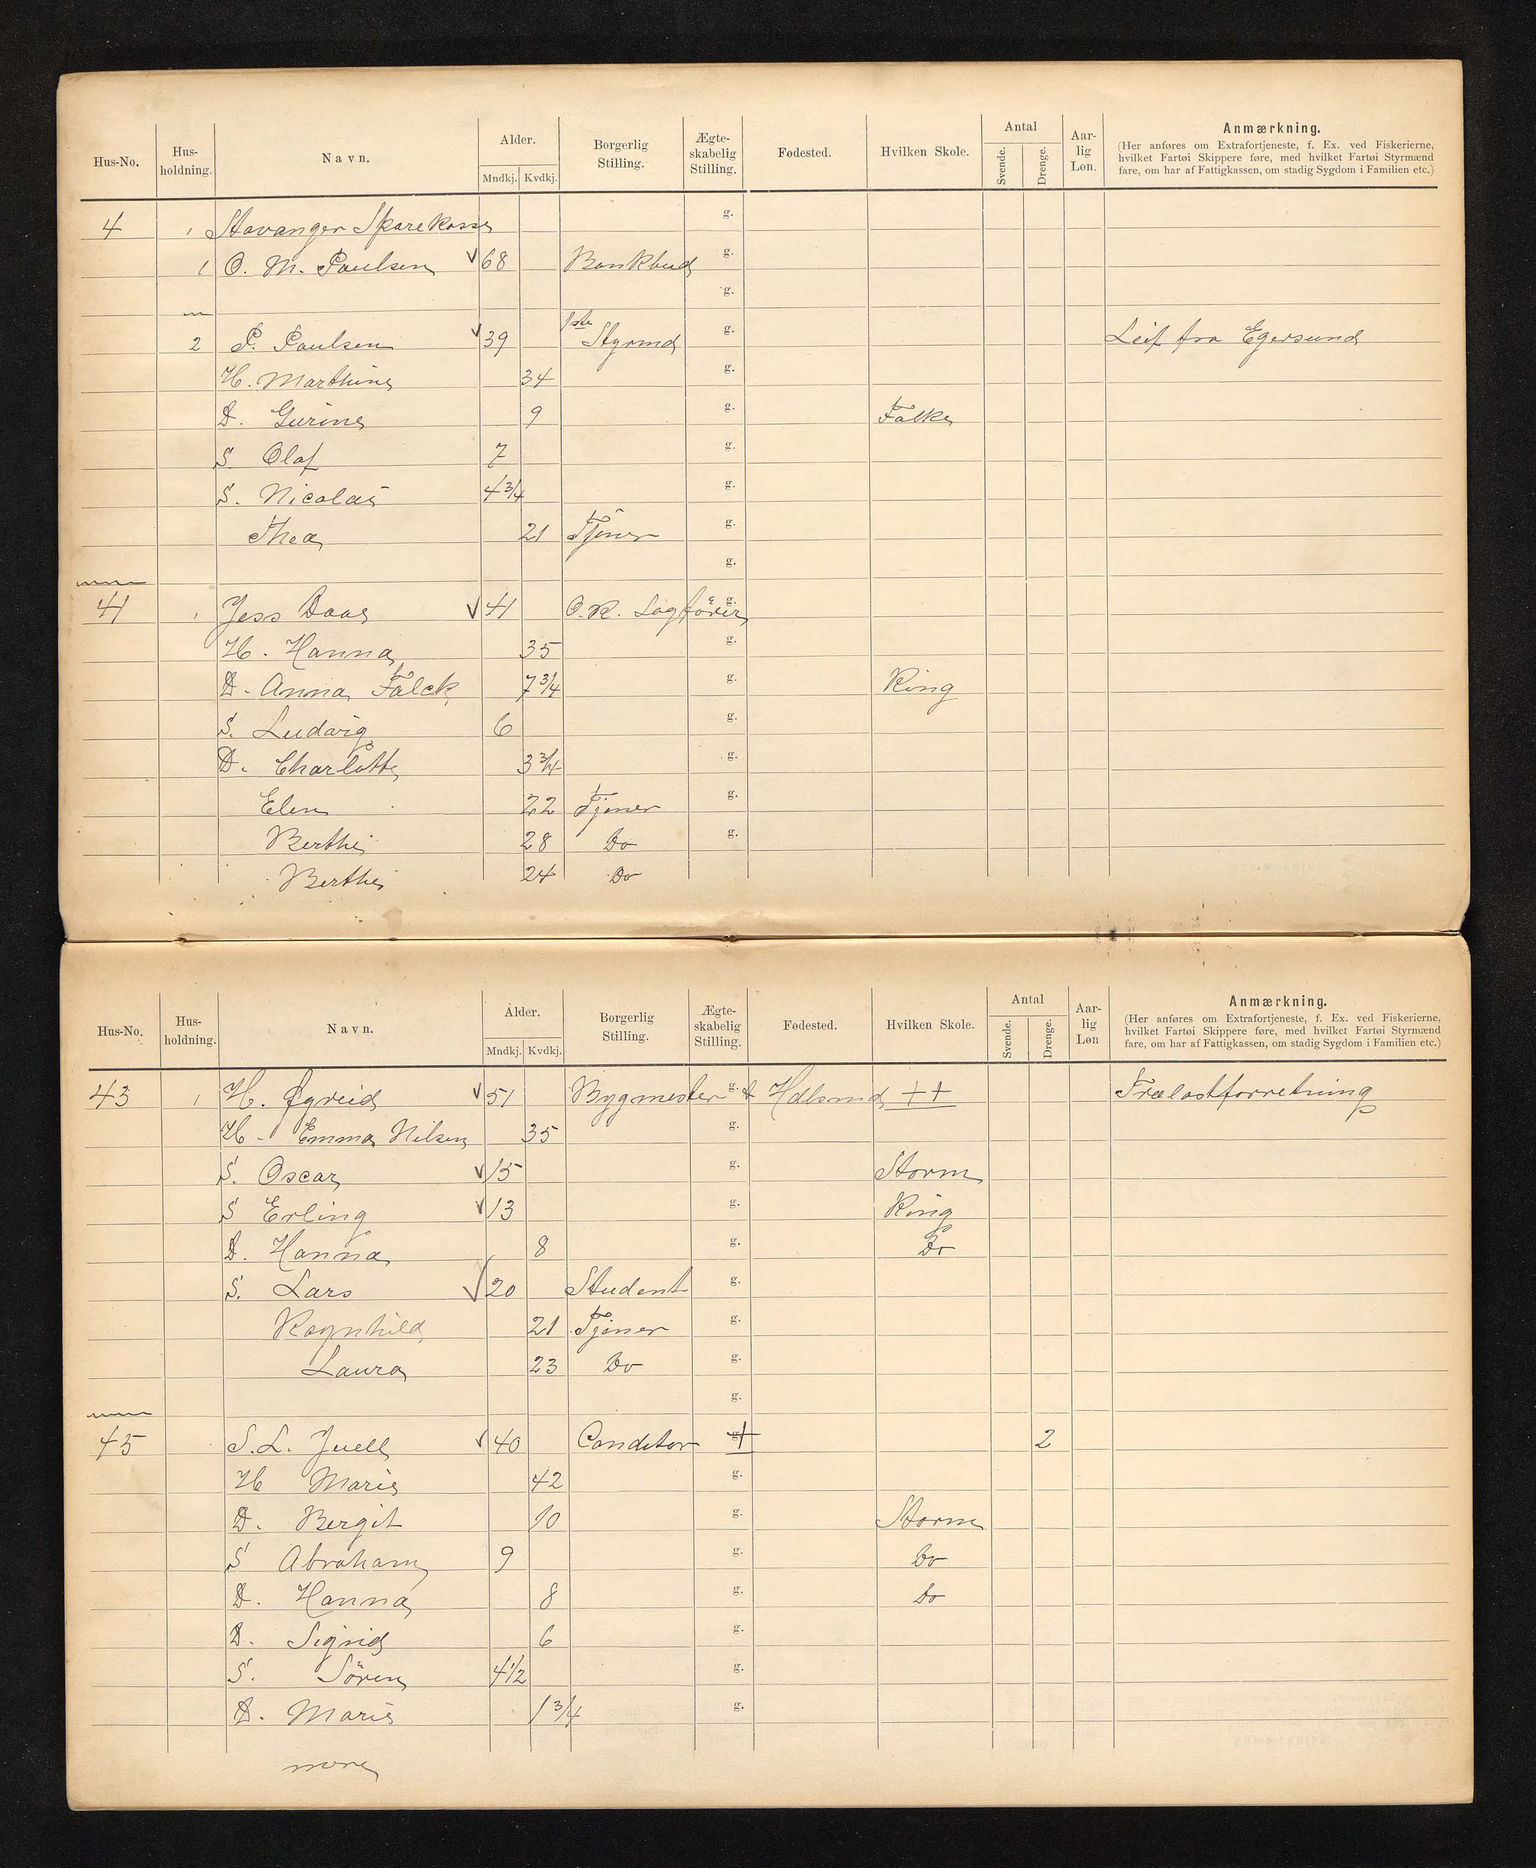 Hus-No. Hus-holdning. Navn. Alder. Mndkj. Kvdkj. Borgerlig Stilling. Ægte-skabelig Stilling. Fødested. Hvilken Skole. Antal Svende. Drenge. Aar-lig Løn. Anmærkning.
(Her anføres om Extrafortjeneste, f. Ex. ved Fiskerierne,
hvilket Fartøi Skippere føre, med hvilket Fartøi Styrmænd
fare, om har af Fattigkassen, om stadig Sygdom i Familien etc.)
4 1 Stavanger Sparekasse g.
1 O. M. Paulsen √ 68 Bankbud g.
g.
2 P. Paulsen √ 39 1ste Styrmd g. Leif fra Egersund
H. Marthine 34 g.
D. Gurine 9 g. Falke
S. Olaf 7 g.
S. Nicolai 4 3/4 g.
Thea 21 Tjener g.
g.
41 1 Jess Daae √ 41 O.R. Sagfører g.
H. Hanna 35 g.
D. Anna Falck 7 3/4 g. Ring
S. Ludvig 6 g.
D. Charlotte 3 3/4 g.
Elen 22 Tjener g.
Berthe 28 Do g.
Berthe 24 Do
Hus-No. Hus-holdning. Navn. Alder. Mndkj. Kvdkj. Borgerlig Stilling. Ægte-skabelig Stilling. Fødested. Hvilken Skole. Antal Svende. Drenge. Aar-lig Løn Anmærkning.
(Her anføres om Extrafortjeneste, f. Ex. ved Fiskerierne,
hvilket Fartøi Skippere føre, med hvilket Fartøi Styrmænd
fare, om har af Fattigkassen, om stadig Sygdom i Familien etc.)
43 1 H. Øgreid √ 51 Bygmester g. ++ Trælastforretning
H. Emma Nilsen 35 g.
S. Oscar √ 15 g. Storm
S Erling √ 13 g. Ring
D. Hanna 8 g. Do
S. Lars √ 20 Student g.
Ragnhild 21 Tjener g.
Laura 23 Do g.
g.
45 S. L. Juell √ 40 Conditor g. + 2
H Marie 42 g.
D. Bergit 10 g. Storm
S Abraham 9 g. Do
D. Hanna 8 g. Do
D. Sigrid 6 g.
S. Sören 4 1/2 g.
D. Marie 1 3/4 g.